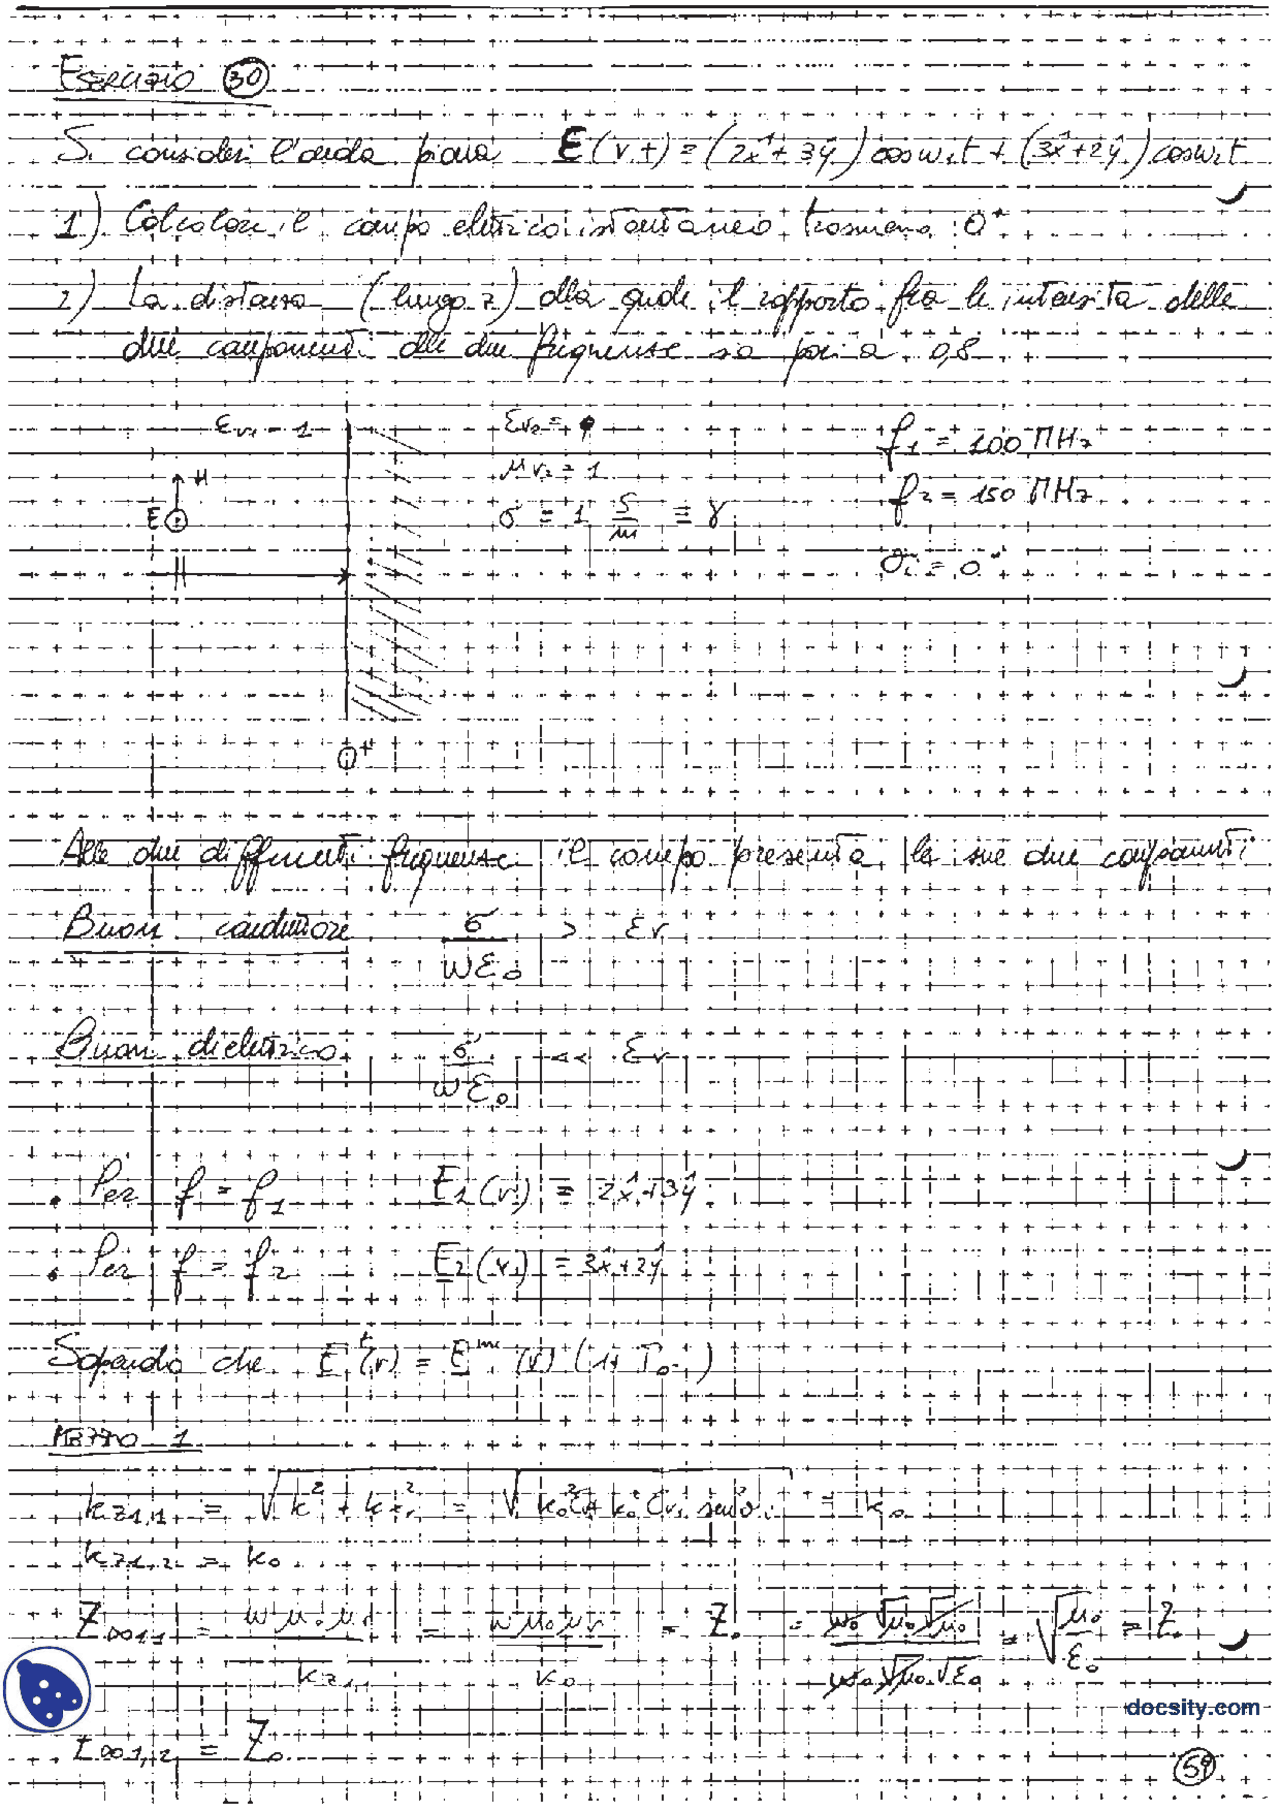 Esercizio 30
Si consideri l'onda piana E(r,t) = (2x̂ + 3ŷ) cosω1t + (3x̂ + 2ŷ) cosω2t
1) Calcolare il campo elettrico istantaneo trasmesso 0⁺
2) La distanza (lungo z) alla quale il rapporto fra le intensità delle
due componenti alle due frequenze sia pari a 0,8
εr1 = 1
εr2 =
f1 = 100 MHz
H
μr2 = 1
f2 = 150 MHz
E
σ = 1 S/m ≡ γ
θi = 0°
0⁺
Alle due differenti frequenze il campo presenta le sue due componenti
Buon conduttore σ/ωε0 > εr
Buon dielettrico σ/ωε0 << εr
• Per f = f1 E1(r) = 2x̂ + 3ŷ
• Per f = f2 E2(r) = 3x̂ + 2ŷ
Sapendo che E^t(r) = E^inc(r) (1 + Γ0-)
MEZZO 1
kz1,1 = = k0
kz1,2 = k0
Z∞1,1 = ωμ0μr/kz1,1 = ωμ0μr/k0 = Z0 = ω0√μ0√μ0/ω0√μ0√ε0 = √μ0/ε0 = Z0
Z∞1,2 = Z0
docsity.com
59